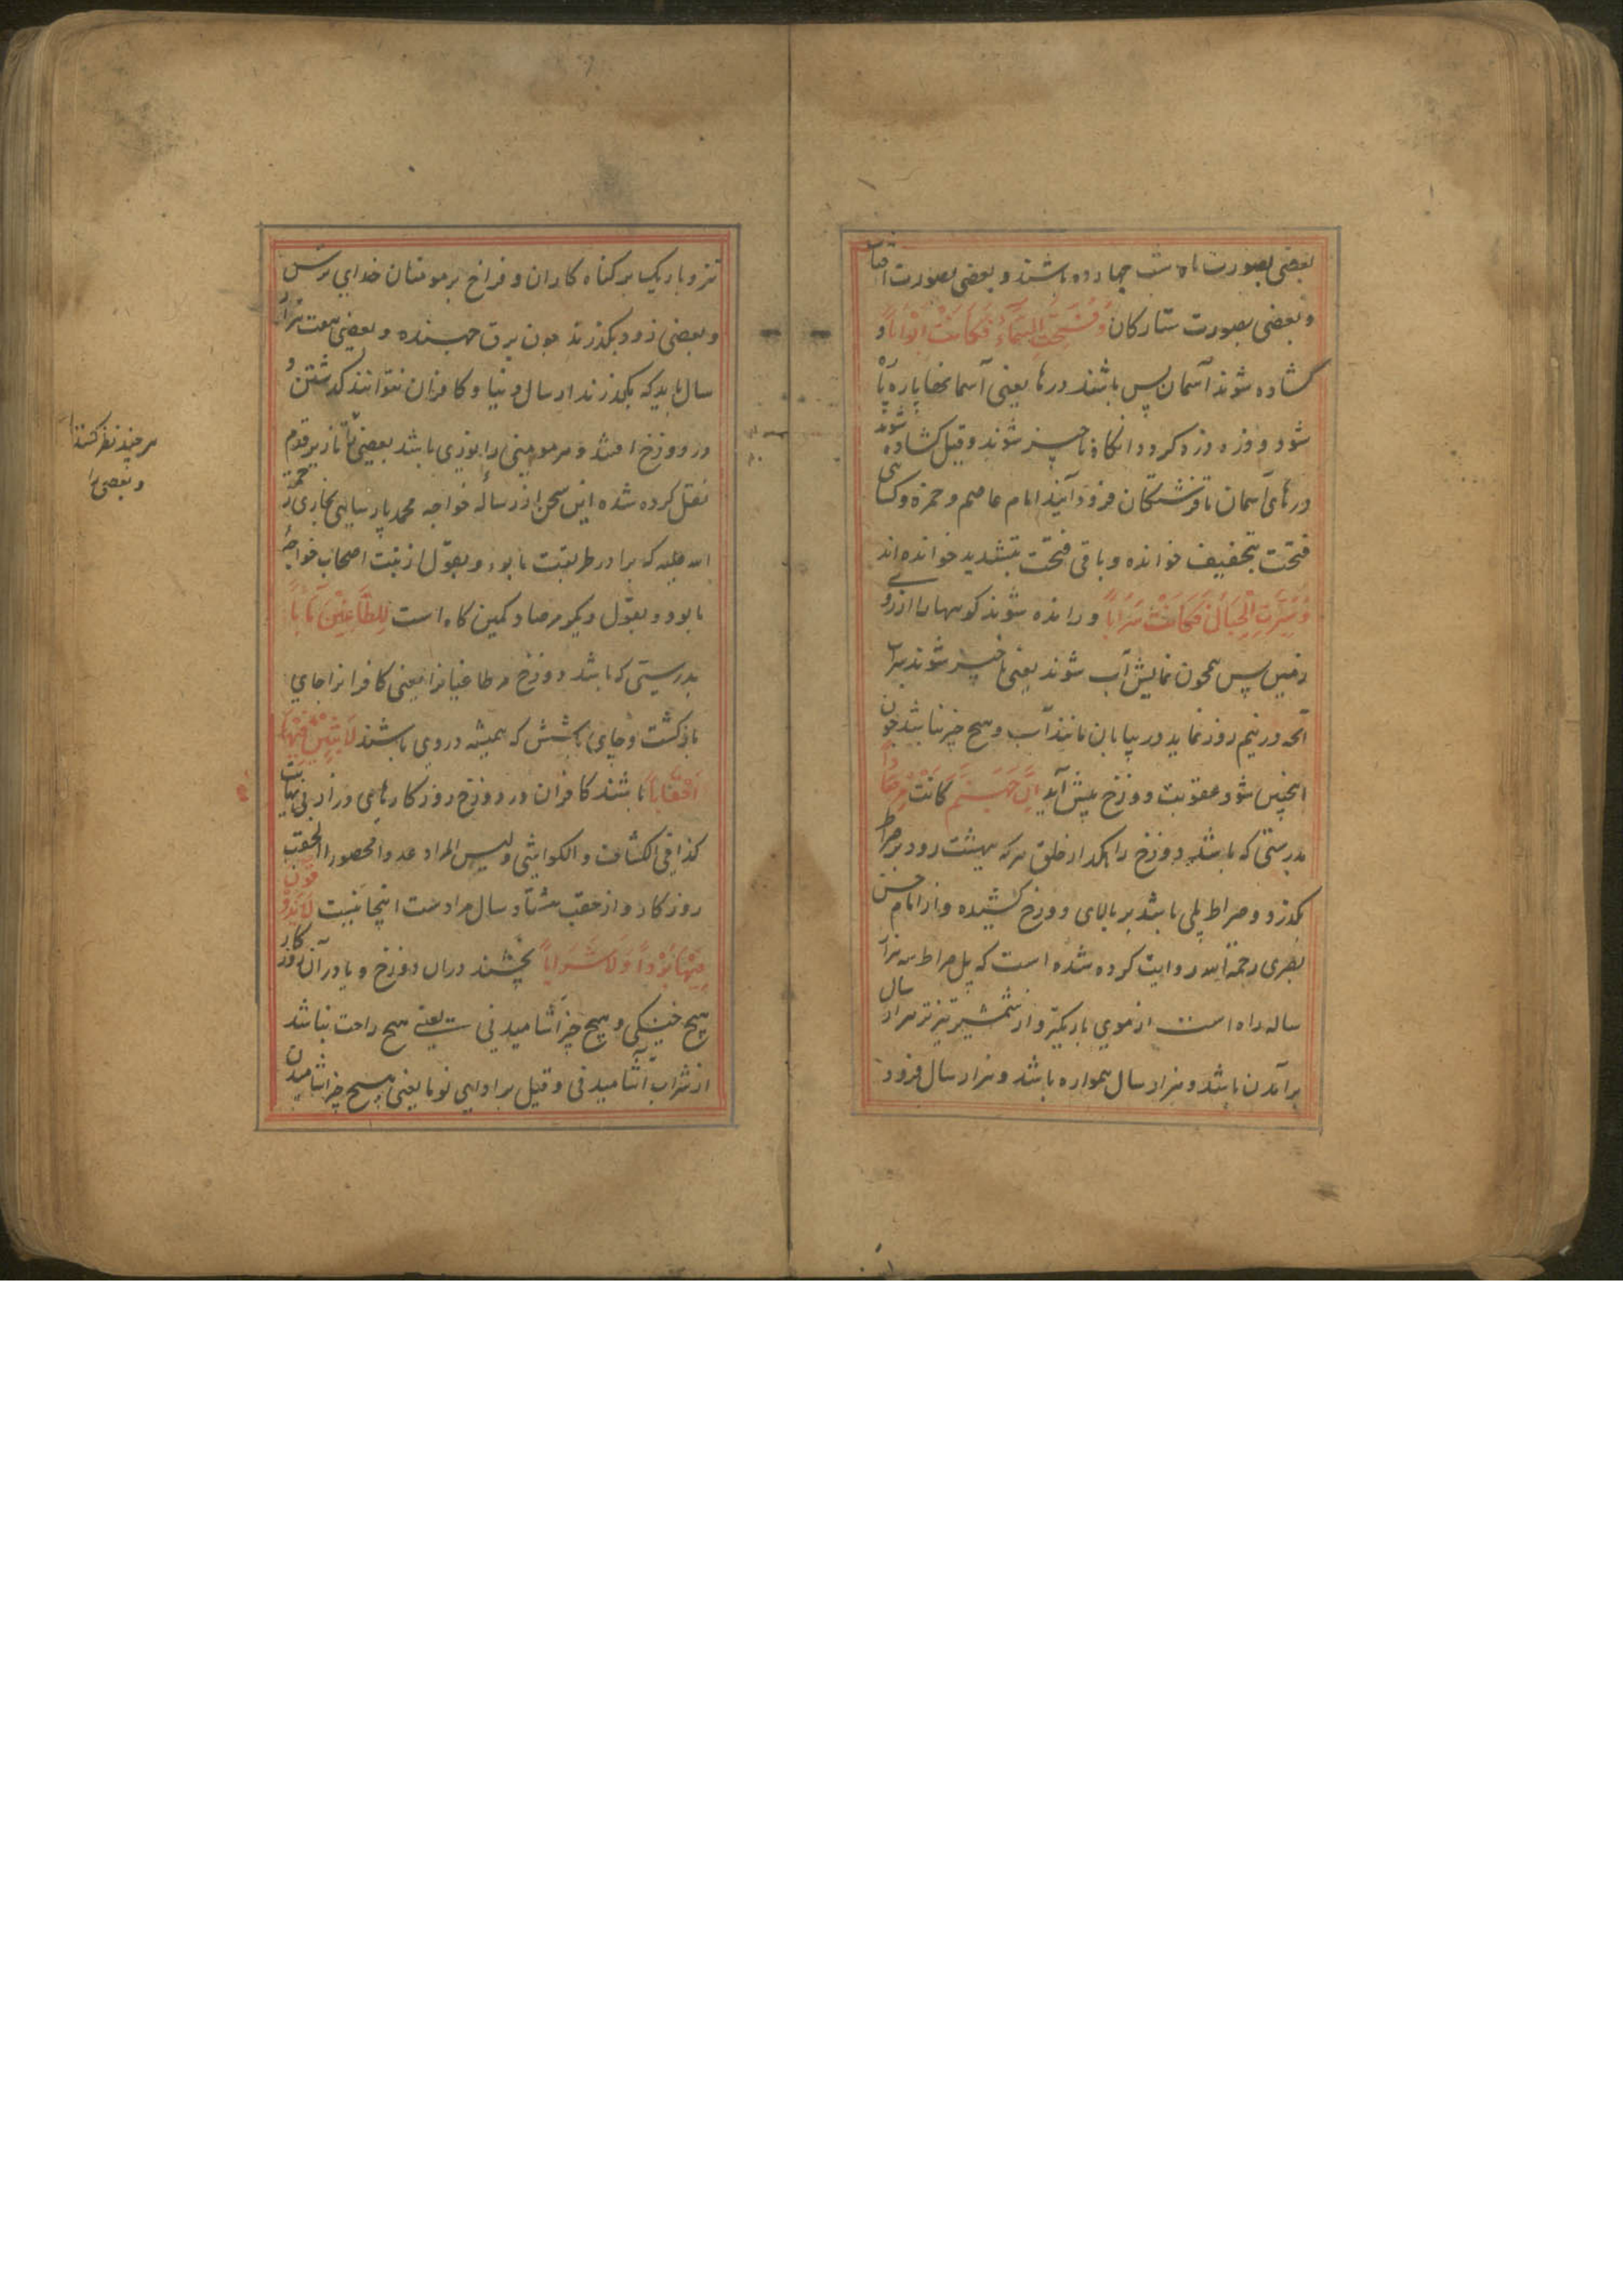 بعضی بصورت ماه شب چهارده باشند و بعضی بصورت افتاب
و بعضی بصورت ستارکان وَفُتِحَتِ السَّمَاءُ فَكَانَتْ اَبْوَاباً و
کشاده شوند آسمان پس باشند درها یعنی آسمانها پاره پا
شود و وزه وزه کردد انکاه ناچیز شوند و قیل کشاده شوند
درهای آسمان تا فرشتکان فرود آیند امام عاصم و حمزه و کسا ئی
فتحت بتخفیف خوانده و باقی فتحت بتشدید خوانده اند
وَسُيِّرَتِ الْجِبَالُ فَكَانَتْ سَرَاباً و رانده شوند کوهها را از روی
زمین پس همچون نمایش آب شوند یعنی ناچیز شوند سراب
آنچه در نیم روز نماید در بیابان مانند آب و هیچ چیز نباشد چون
اینچنین شود عقوبت دوزخ پیش آید اِنَّ جَهَنَّمَ كَانَتْ مِرْصَاداً
بدرستی که باشد دوزخ را هکدار خلق هرکه ببهشت رود بر صراط
بکذرد و صراط پلی باشد بر بالای دوزخ کشیده و از امام حسن
بصری رحمة الله روایت کرده شده است که پل صراط سه هزار
ساله راه است از موی باریکتر و از شمشیر تیزتر هزار سال
برآمدن باشد و هزار سال همواره باشد و هزار سال فرود
تنز و باریک بر کناه کاران و فراخ بر مومنان خدای ترس
و بعضی زود بکذرند چون برق جهنده و بعضی هفت هزار
سال باید که بکذرند از سال دنیا و کافران نتوانند کدشتن و
در دوزخ افتند و هر مومنی را نوری باشد بعضی را تا زیر قدم
نقل کرده شده این سخن از رساله خواجه محمد پارسایی بخاری رحمة
الله علیه که برادر طریقت ما بود و بقول از نبت اصحاب خواجهٔ
ما بود و بقول دیکر مرصاد کمین کاه است لِلطَّاغِيْنَ مَاٰباً
بدرستی که باشد دوزخ مر طاغیانرا یعنی کافرانرا جای
باز کشت و جای باشش که همیشه در وی باشند لَابِثِيْنَ فِيْهَا
اَحْقَاباً باشند کافران در دوزخ روزکارهای دراز بی نهایت
کذا فی الکشاف و الکواشی و لیس المراد عددا محصورا الحقب
روزکار و از حقب هشتاد سال مراد ست اینجا نیست لَا يَذُوْقُوْنَ
فِيْهَا بَرْداً وَلَا شَرَاباً نچشند دران دوزخ و یا در آن روزکار
هیچ خنکی و هیچ چیز آشامیدنی یعنی هیچ راحت نباشد
از شراب آشامیدنی و قیل بردا ای نوما یعنی هیچ چیز آشامیدن
هر چند نظر کنند
و بعضی را